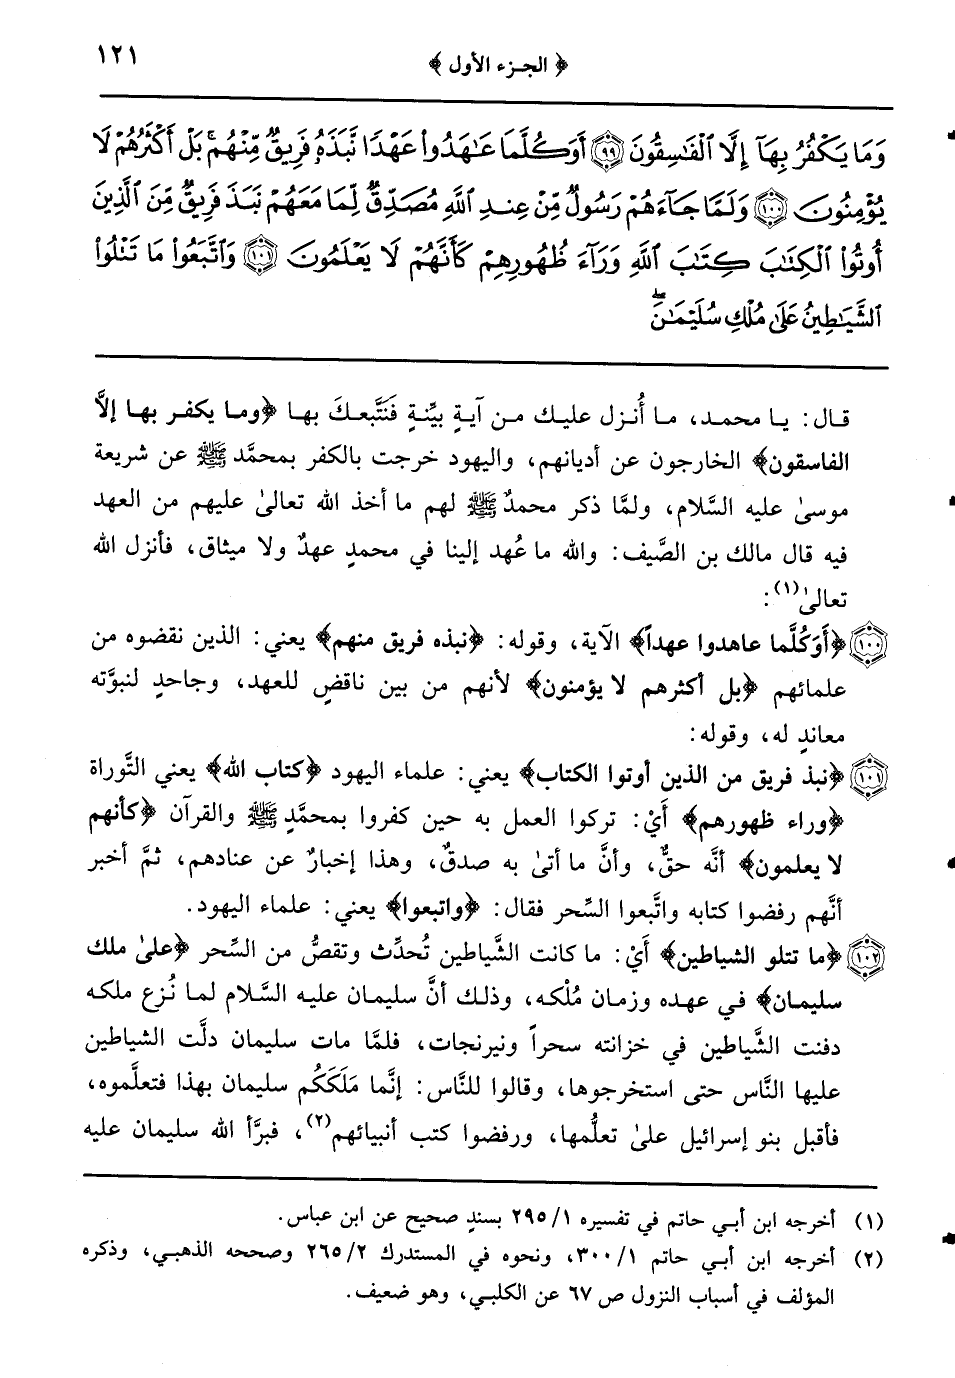 ﴿ الجزء الأول ﴾ ١٢١
وَمَا يَكْفُرُ بِهَآ إِلَّا ٱلْفَٰسِقُونَ ۝٩٩ أَوَكُلَّمَا عَٰهَدُوا۟ عَهْدًا نَّبَذَهُۥ فَرِيقٌ مِّنْهُم ۚ بَلْ أَكْثَرُهُمْ لَا
يُؤْمِنُونَ ۝١٠٠ وَلَمَّا جَآءَهُمْ رَسُولٌ مِّنْ عِندِ ٱللَّهِ مُصَدِّقٌ لِّمَا مَعَهُمْ نَبَذَ فَرِيقٌ مِّنَ ٱلَّذِينَ
أُوتُوا۟ ٱلْكِتَٰبَ كِتَٰبَ ٱللَّهِ وَرَآءَ ظُهُورِهِمْ كَأَنَّهُمْ لَا يَعْلَمُونَ ۝١٠١ وَٱتَّبَعُوا۟ مَا تَتْلُوا۟
ٱلشَّيَٰطِينُ عَلَىٰ مُلْكِ سُلَيْمَٰنَ ۖ
قال: يا محمد، ما أُنزل عليك من آيةٍ بيِّنةٍ فَنَتَّبعكَ بها ﴿وما يكفر بها إلَّا
الفاسقون﴾ الخارجون عن أديانهم، واليهود خرجت بالكفر بمحمَّد ﷺ عن شريعة
موسىٰ عليه السَّلام، ولمَّا ذكر محمدٌ ﷺ لهم ما أخذ الله تعالىٰ عليهم من العهد
فيه قال مالك بن الصَّيف: والله ما عُهد إلينا في محمدٍ عهدٌ ولا ميثاق، فأنزل الله
تعالىٰ(١):
۝١٠٠ ﴿أوَكُلَّما عاهدوا عهداً﴾ الآية، وقوله: ﴿نبذه فريق منهم﴾ يعني: الذين نقضوه من
علمائهم ﴿بل أكثرهم لا يؤمنون﴾ لأنهم من بين ناقضٍ للعهد، وجاحدٍ لنبوَّته
معاندٍ له، وقوله:
۝١٠١ ﴿نبذ فريق من الذين أوتوا الكتاب﴾ يعني: علماء اليهود ﴿كتاب الله﴾ يعني التَّوراة
﴿وراء ظهورهم﴾ أيْ: تركوا العمل به حين كفروا بمحمَّدٍ ﷺ والقرآن ﴿كأنهم
لا يعلمون﴾ أنَّه حقٌّ، وأنَّ ما أتىٰ به صدقٌ، وهذا إخبارٌ عن عنادهم، ثمَّ أخبر
أنَّهم رفضوا كتابه واتَّبعوا السِّحر فقال: ﴿واتبعوا﴾ يعني: علماء اليهود.
۝١٠٢ ﴿ما تتلو الشياطين﴾ أيْ: ما كانت الشَّياطين تُحدِّث وتقصُّ من السِّحر ﴿علىٰ ملك
سليمان﴾ في عهده وزمان مُلْكه، وذلك أنَّ سليمان عليه السَّلام لما نُزع ملكه
دفنت الشَّياطين في خزانته سحراً ونيرنجات، فلمَّا مات سليمان دلَّت الشياطين
عليها النَّاس حتى استخرجوها، وقالوا للنَّاس: إنَّما مَلَكَكُم سليمان بهذا فتعلَّموه،
فأقبل بنو إسرائيل علىٰ تعلُّمها، ورفضوا كتب أنبيائهم(٢)، فبرَّأ الله سليمان عليه
(١) أخرجه ابن أبي حاتم في تفسيره ١/ ٢٩٥ بسندٍ صحيح عن ابن عباس.
(٢) أخرجه ابن أبي حاتم ١/ ٣٠٠، ونحوه في المستدرك ٢/ ٢٦٥ وصححه الذهبي، وذكره
المؤلف في أسباب النزول ص ٦٧ عن الكلبي، وهو ضعيف.